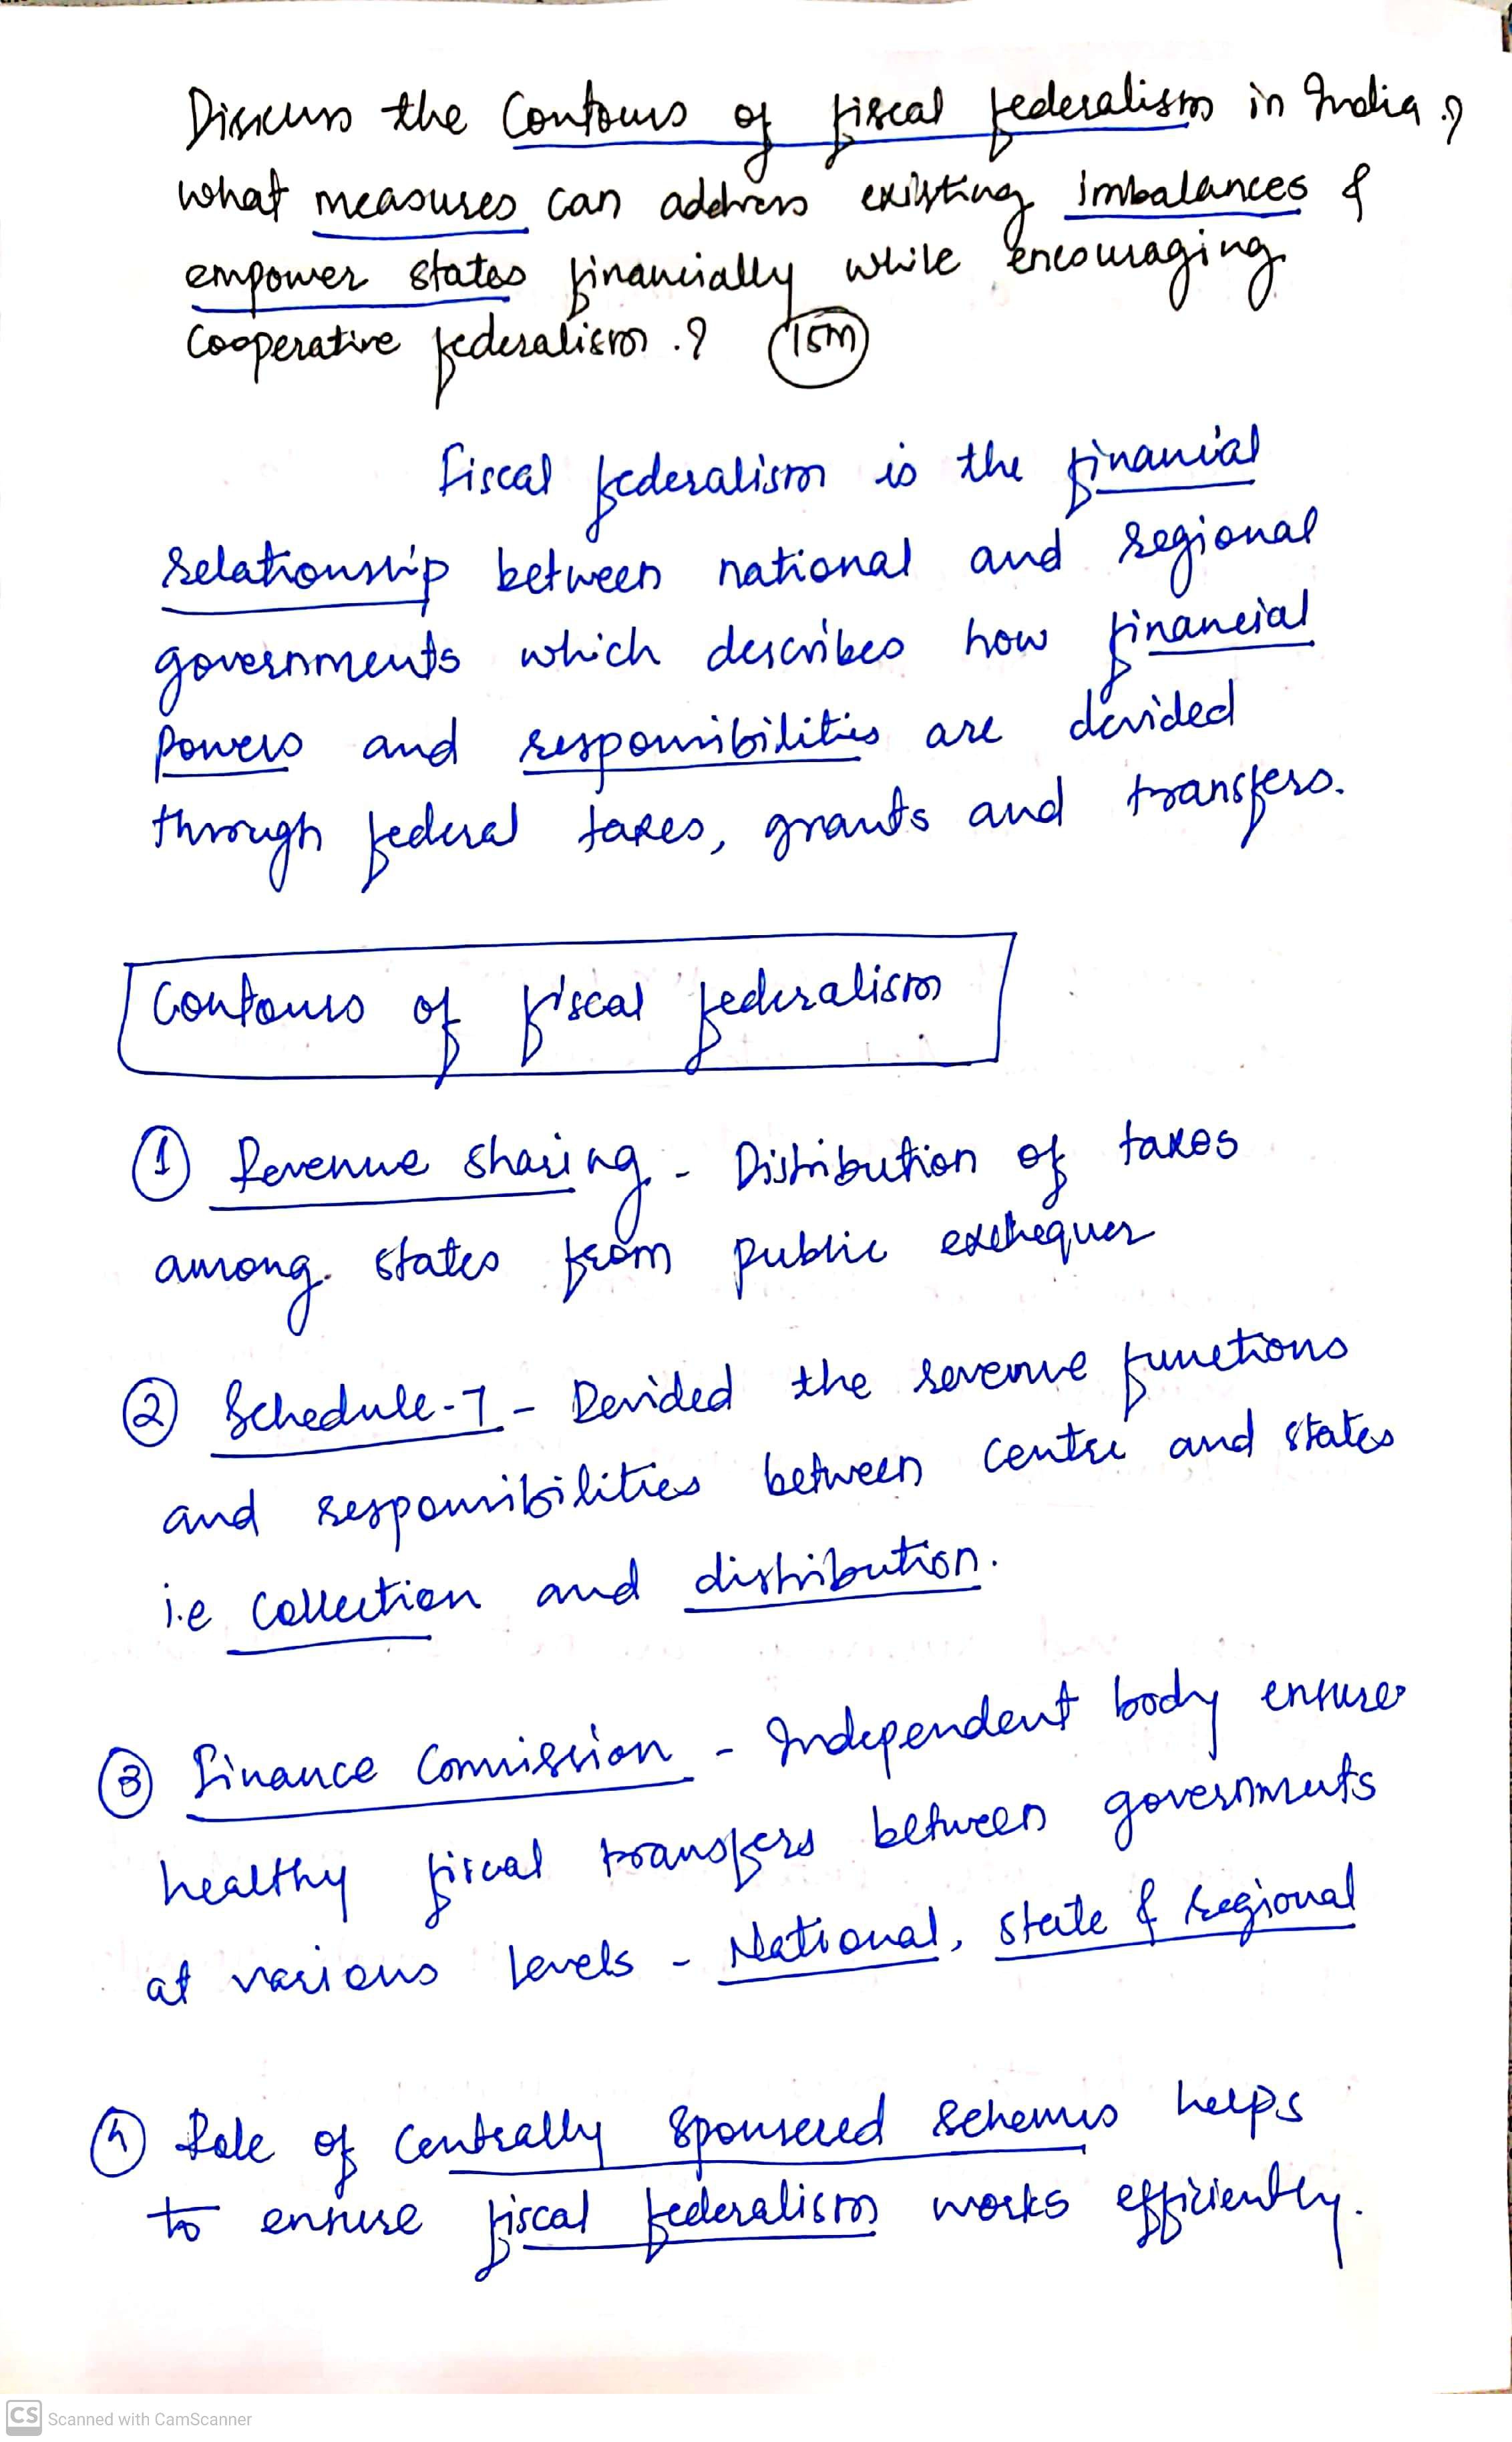 Discuss the Contours of fiscal federalism in India ?
what measures can address existing imbalances &
empower states financially while encouraging
Cooperative federalism .? 15m
Fiscal federalism is the financial
relationship between national and regional
governments which describes how financial
Powers and responsibilities are devided
through federal taxes, grants and transfers.
Contours of fiscal federalism
① Revenue sharing - Distribution of taxes
among states from public exchequer
② Schedule-7 - Devided the revenue functions
and responsibilities between Centre and states
i.e Collection and distribution.
③ Finance Commission - Independent body ensures
healthy fiscal transfers between governments
at various levels - National, state & regional
④ Role of Centrally Sponsered Schemes helps
to ensure fiscal federalism works efficiently.
CS Scanned with CamScanner